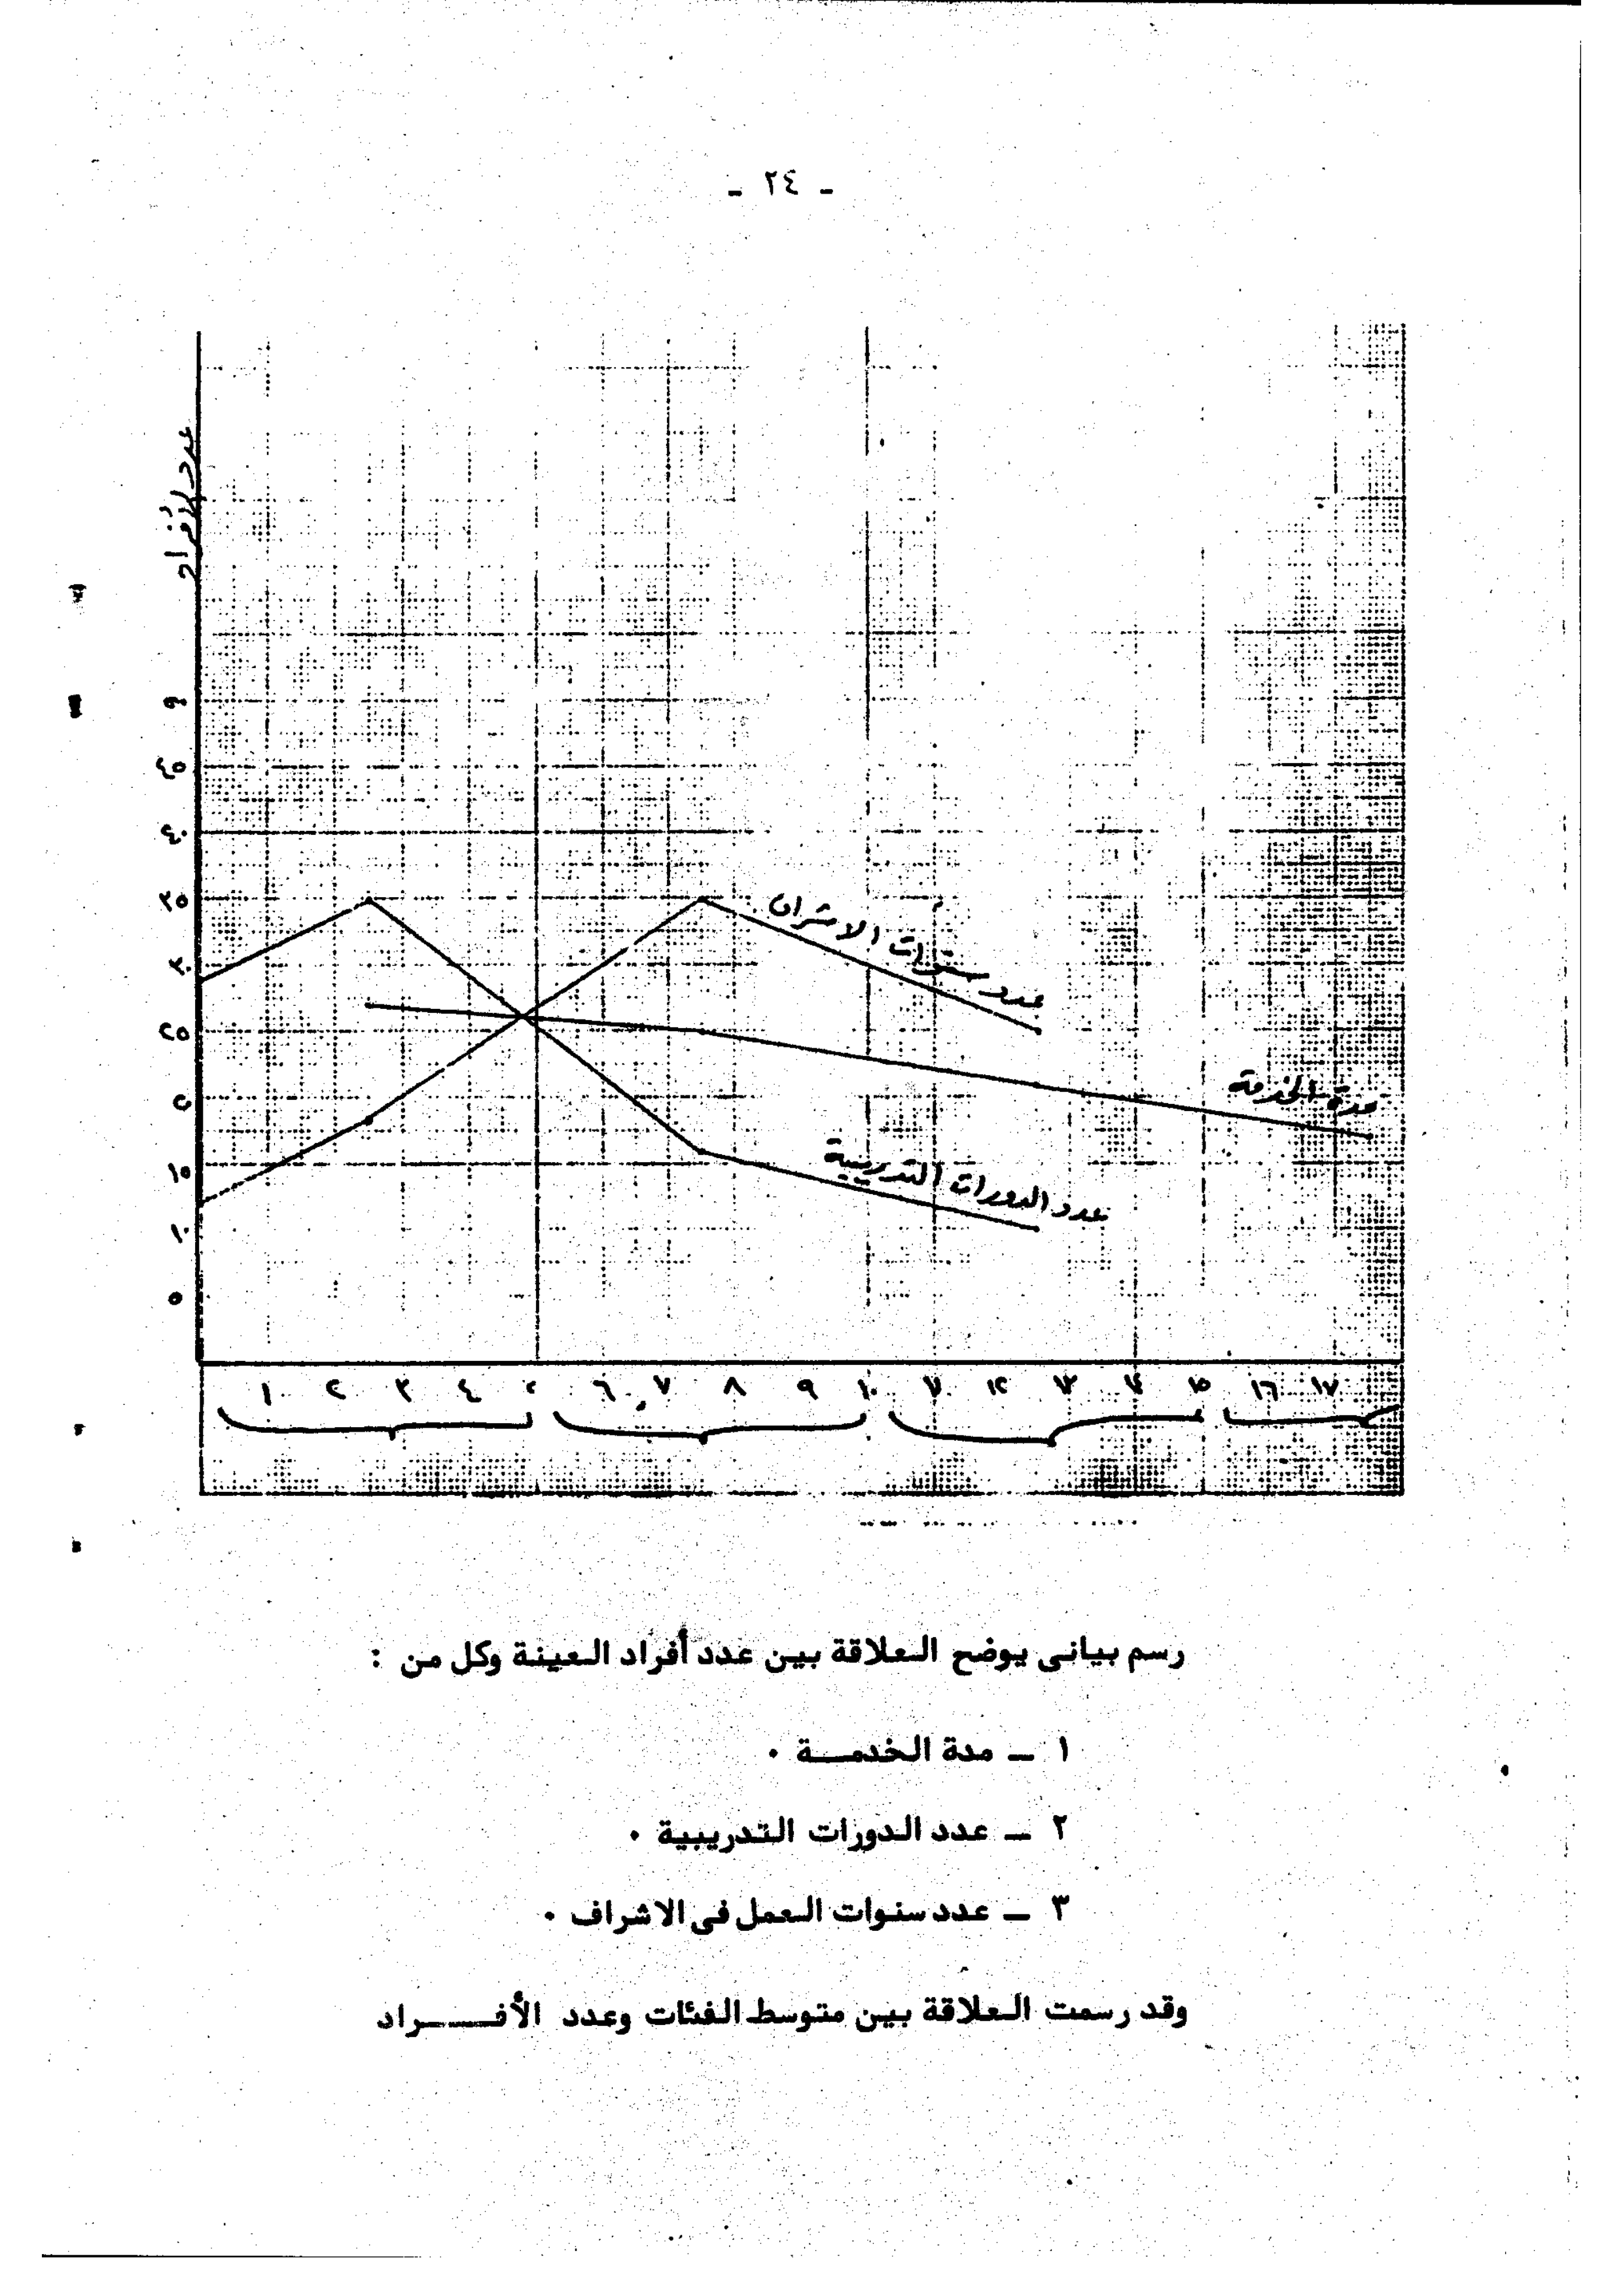 - ٢٤ -
عدد الأفراد
٥٠
٤٥
٤٠
٣٥
٣٠
٢٥
١٥
١٠
٥
عدد سنوات الاشراف
مدة الخدمة
عدد الدورات التدريبية
١ ٢ ٣ ٤ ٦ ٧ ٨ ٩ ١٠ ١٢ ١٣ ١٤ ١٥ ١٦ ١٧
رسم بيانى يوضح العلاقة بين عدد أفراد العينة وكل من :
١ ــ مدة الخدمــة ٠
٢ ــ عدد الدورات التدريبية ٠
٣ ــ عدد سنوات العمل فى الاشراف ٠
وقد رسمت العلاقة بين متوسط الفئات وعدد الأفــــراد